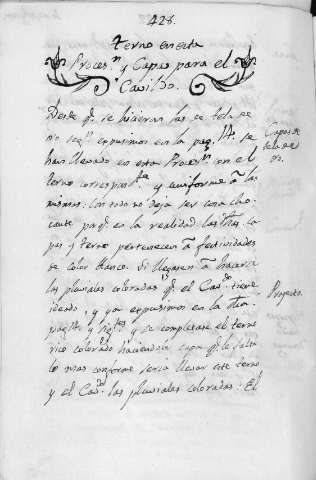 428.
terno en esta
Proces.n y Capas para el
Cavildo.
Desde q.e se hicieron las de tela de
oro seg.n expusimos en la pag. se
han llevado en esta Proces.n con el
terno correspond.te y uniforme â las
mismas: Con todo no deja ser cosa cho-
cante p.r q.e en la realidad las d.has ca-
pas y terno pertenecen â festividades
de color blanco. Si llegasen â hacerse
las pluviales coloradas q.e el Cav.do tiene
ideado, y ya expusimos en la
pag. y sig.tes y se completase el terno
rico colorado haciendole capa q.e le falta
lo mas conforme seria llevar este terno
y el Cav.do las pluviales coloradas. El
Capas de
tela de
oro.
Proyecto.